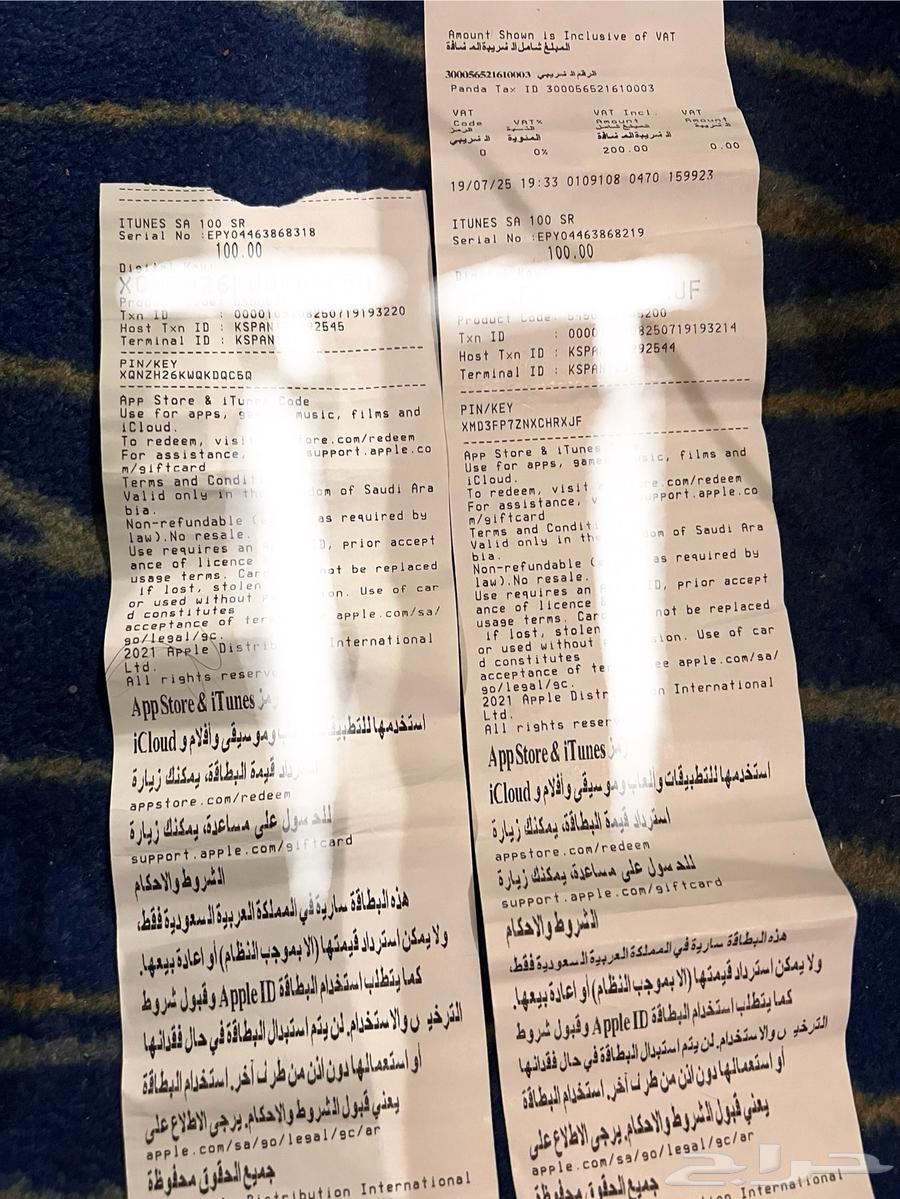 Amount Shown is Inclusive of VAT
المبلغ شامل الضريبة المضافة
الرقم الضريبي 300056521610003
Panda Tax ID 300056521610003
VAT Code VAT% VAT Incl. Amount VAT Amount
0 0% 200.00 0.00
19/07/25 19:33 0109108 0470 159923
ITUNES SA 100 SR
Serial No :EPY04463868318
100.00
Txn ID
Host Txn ID : KSPAN 2545
Terminal ID : KSPAN
PIN/KEY
XQNZH26KWQKDQC5Q
App Store & iTu Code
Use for apps, music, films and
iCloud.
To redeem, visi ore.com/redeem
For assistance, support.apple.co
m/giftcard
Terms and Condit
Valid only in th dom of Saudi Ara
bia.
Non-refundable as required by
law).No resale.
Use requires an ID, prior accept
ance of licence
usage terms. Car not be replaced
if lost, stolen
or used without on. Use of car
d constitutes
acceptance of ter apple.com/sa/
go/legal/gc.
2021 Apple Distri International
Ltd.
All rights reserve
App Store & iTunes
استخدمها للتطبيقات وموسيقى وأفلام و iCloud
استرداد قيمة البطاقة، يمكنك زيارة
appstore.com/redeem
للحصول على مساعدة، يمكنك زيارة
support.apple.com/giftcard
الشروط والاحكام
هذه البطاقة سارية في المملكة العربية السعودية فقط،
ولا يمكن استرداد قيمتها (الا بموجب النظام) أو اعادة بيعها.
كما يتطلب استخدام البطاقة Apple ID وقبول شروط
الترخيص والاستخدام. لن يتم استبدال البطاقة في حال فقدانها
أو استعمالها دون اذن من طرف آخر. استخدام البطاقة
يعني قبول الشروط والاحكام. يرجى الاطلاع على
apple.com/sa/go/legal/gc/ar
جميع الحقوق محفوظة
Distribution International
ITUNES SA 100 SR
Serial No :EPY04463868219
100.00
JF
Product Code:
Txn ID
Host Txn ID : KSPA 92544
Terminal ID : KSPA
PIN/KEY
XMD3FP7ZNXCHRXJF
App Store & iTunes
Use for apps, game music, films and
iCloud.
To redeem, visit re.com/redeem
For assistance, support.apple.co
m/giftcard
Terms and Condit
Valid only in the dom of Saudi Ara
bia.
Non-refundable as required by
law).No resale.
Use requires an ID, prior accept
ance of licence
usage terms. Car not be replaced
if lost, stolen
or used without sion. Use of car
d constitutes
acceptance of te ee apple.com/sa/
go/legal/gc.
2021 Apple Distr on International
Ltd.
All rights reser
App Store & iTunes رمز
استخدمها للتطبيقات والعاب وموسيقى وأفلام و iCloud
استرداد قيمة البطاقة، يمكنك زيارة
appstore.com/redeem
للحصول على مساعدة، يمكنك زيارة
support.apple.com/giftcard
الشروط والاحكام
هذه البطاقة سارية في المملكة العربية السعودية فقط،
ولا يمكن استرداد قيمتها (الا بموجب النظام) أو اعادة بيعها.
كما يتطلب استخدام البطاقة Apple ID وقبول شروط
الترخيص والاستخدام. لن يتم استبدال البطاقة في حال فقدانها
أو استعمالها دون اذن من طرف آخر. استخدام البطاقة
يعني قبول الشروط والاحكام. يرجى الاطلاع على
apple.com/sa/go/legal/gc/ar
جميع الحقوق محفوظة
Distribution International
حراج